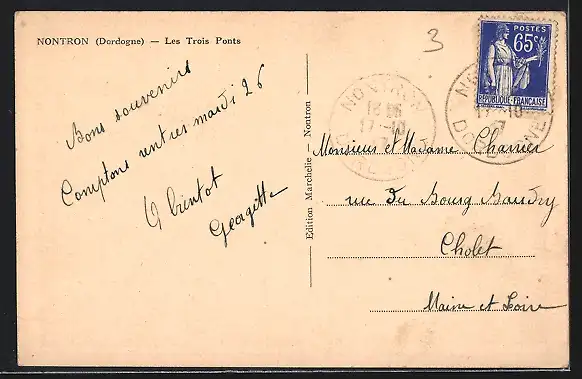 NONTRON (Dordogne) — Les Trois Ponts
Bons souvenirs
Comptons rentrer mardi 26
A bientot
Georgette
Edition Marchelie - Nontron
3
POSTES
65c
REPUBLIQUE FRANÇAISE
NONTRON
18 05
17-10
DORDOGNE
Monsieur et Madame Charrier
rue du Bourg Baudry
Cholet
Maine et Loire